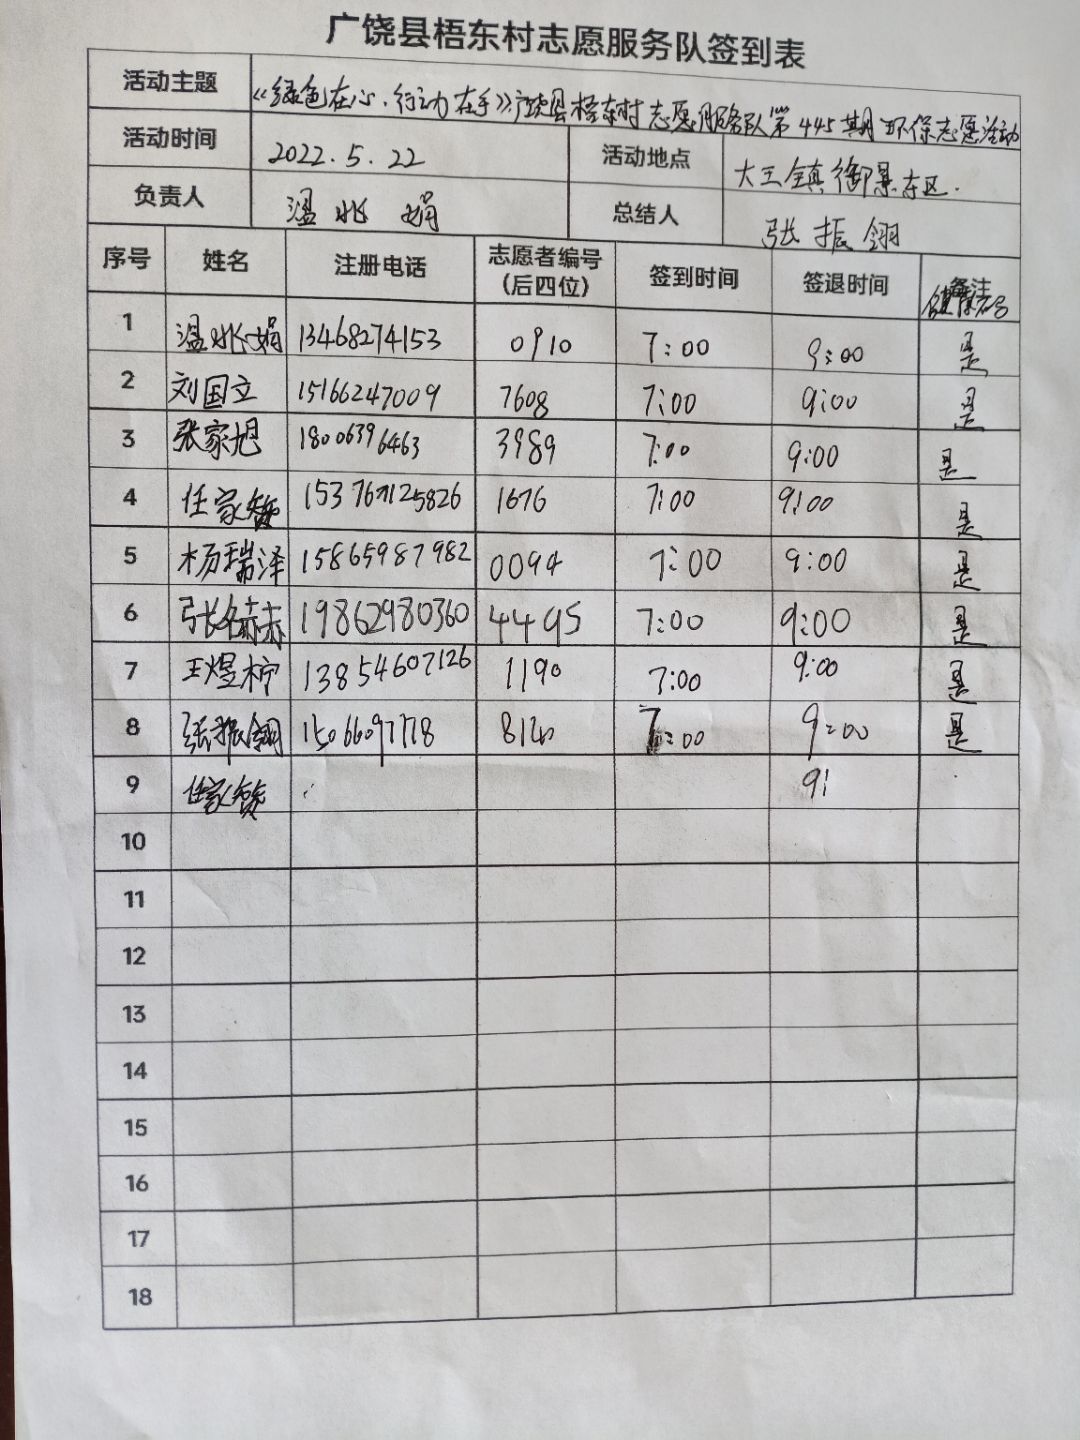 广饶县梧东村志愿服务队签到表
活动主题 《绿色在心、行动在手》广饶县梧东村志愿服务队第445期环保志愿活动
活动时间 2022.5.22 活动地点 大王镇御景东区.
负责人 温兆娟 总结人 张振翎
序号 姓名 注册电话 志愿者编号(后四位) 签到时间 签退时间 备注
1 温兆娟 13468274153 0910 7:00 9:00 是
2 刘国立 15166247009 7608 7:00 9:00 是
3 张家旭 18006396463 3989 7:00 9:00 是
4 任家 1676 7:00 9:00 是
5 杨瑞泽 15865987982 0094 7:00 9:00 是
6 张 19862980360 4495 7:00 9:00 是
7 王煜柠 13854607126 1190 7:00 9:00 是
8 张振翎 15066097778 8:00 9:00 是
9 任家 9:
10
11
12
13
14
15
16
17
18